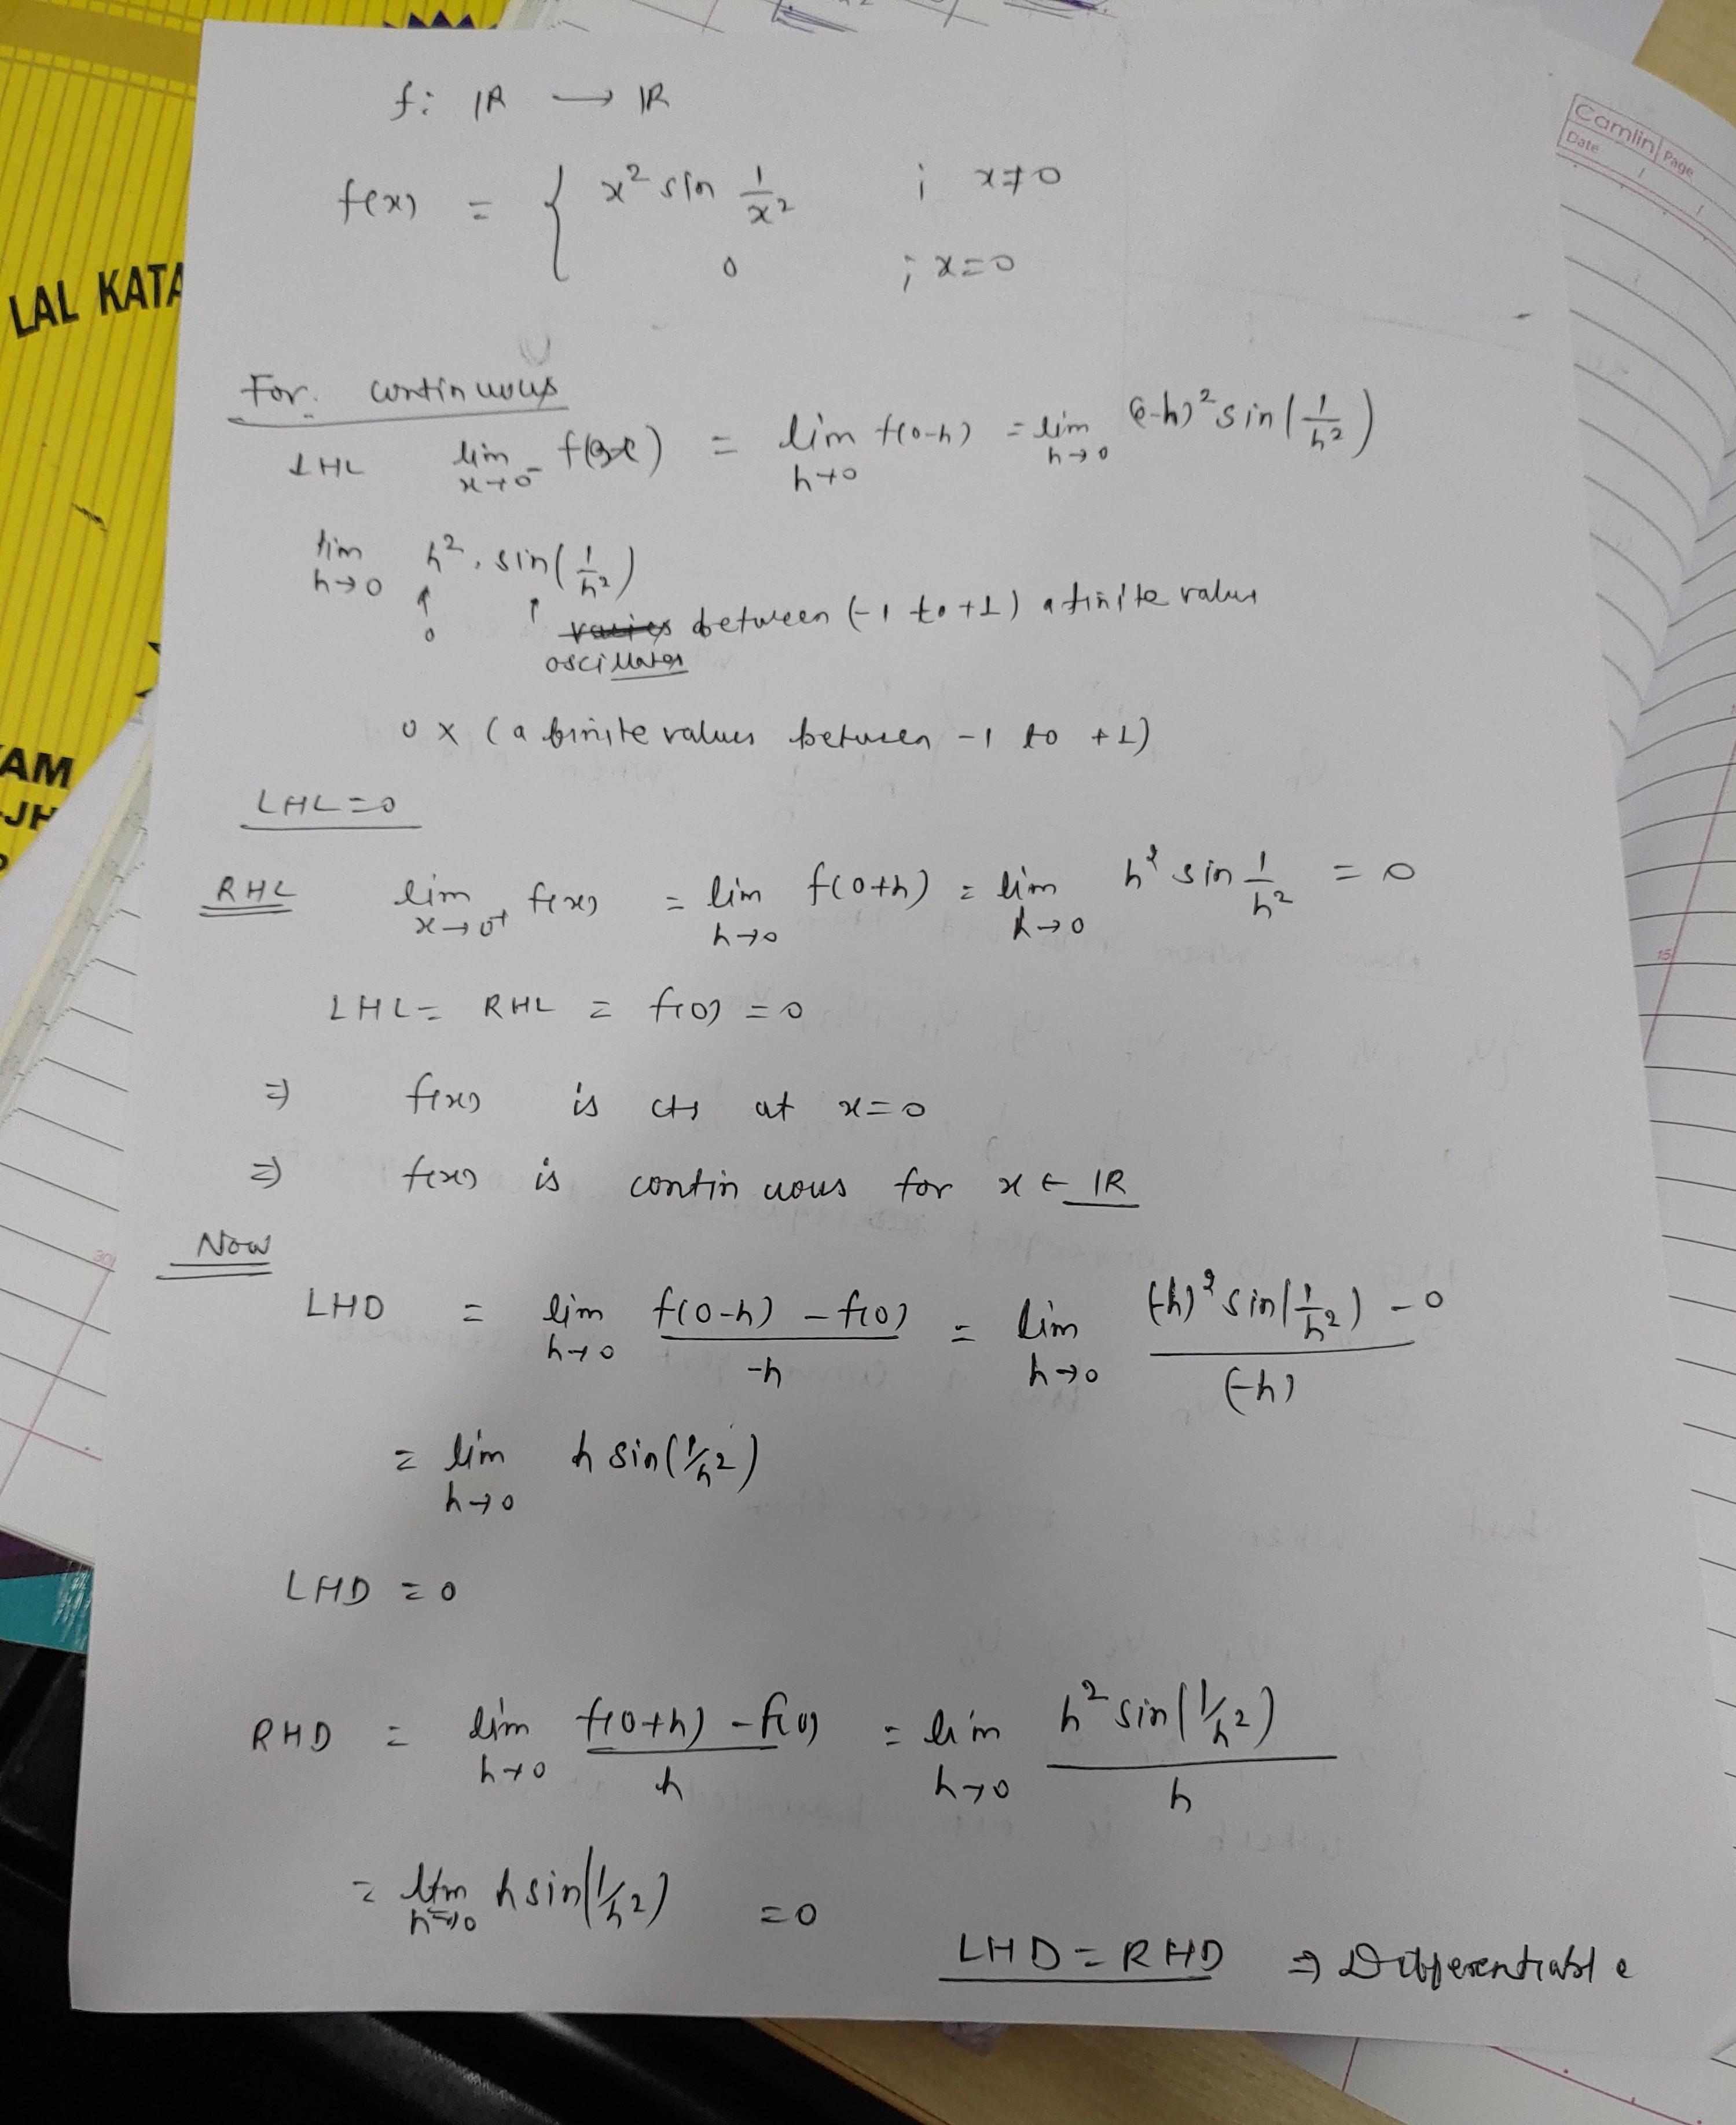 LAL KATA
AM
-JH
Camlin Page
Date
f: ℝ → ℝ
f(x) = { x² sin 1/x² ; x≠0
0 ; x=0
For. continuous
LHL lim x→0⁻ f(x) = lim h→0 f(0-h) = lim h→0 (0-h)² sin(1/h²)
lim h→0 h². sin(1/h²)
↑ 0 ↑ varies between (-1 to +1) a finite value
oscillates
0 × (a finite values between -1 to +1)
LHL=0
RHL lim x→0⁺ f(x) = lim h→0 f(0+h) = lim h→0 h² sin 1/h² = 0
LHL = RHL = f(0) = 0
⇒ f(x) is cts at x=0
⇒ f(x) is continuous for x ∈ ℝ
Now
LHD = lim h→0 f(0-h) - f(0) / -h = lim h→0 (-h)² sin(1/h²) - 0 / (-h)
= lim h→0 h sin(1/h²)
LHD = 0
RHD = lim h→0 f(0+h) - f(0) / h = lim h→0 h² sin(1/h²) / h
= lim h→0 h sin(1/h²) = 0
LHD = RHD ⇒ Differentiable
15
30